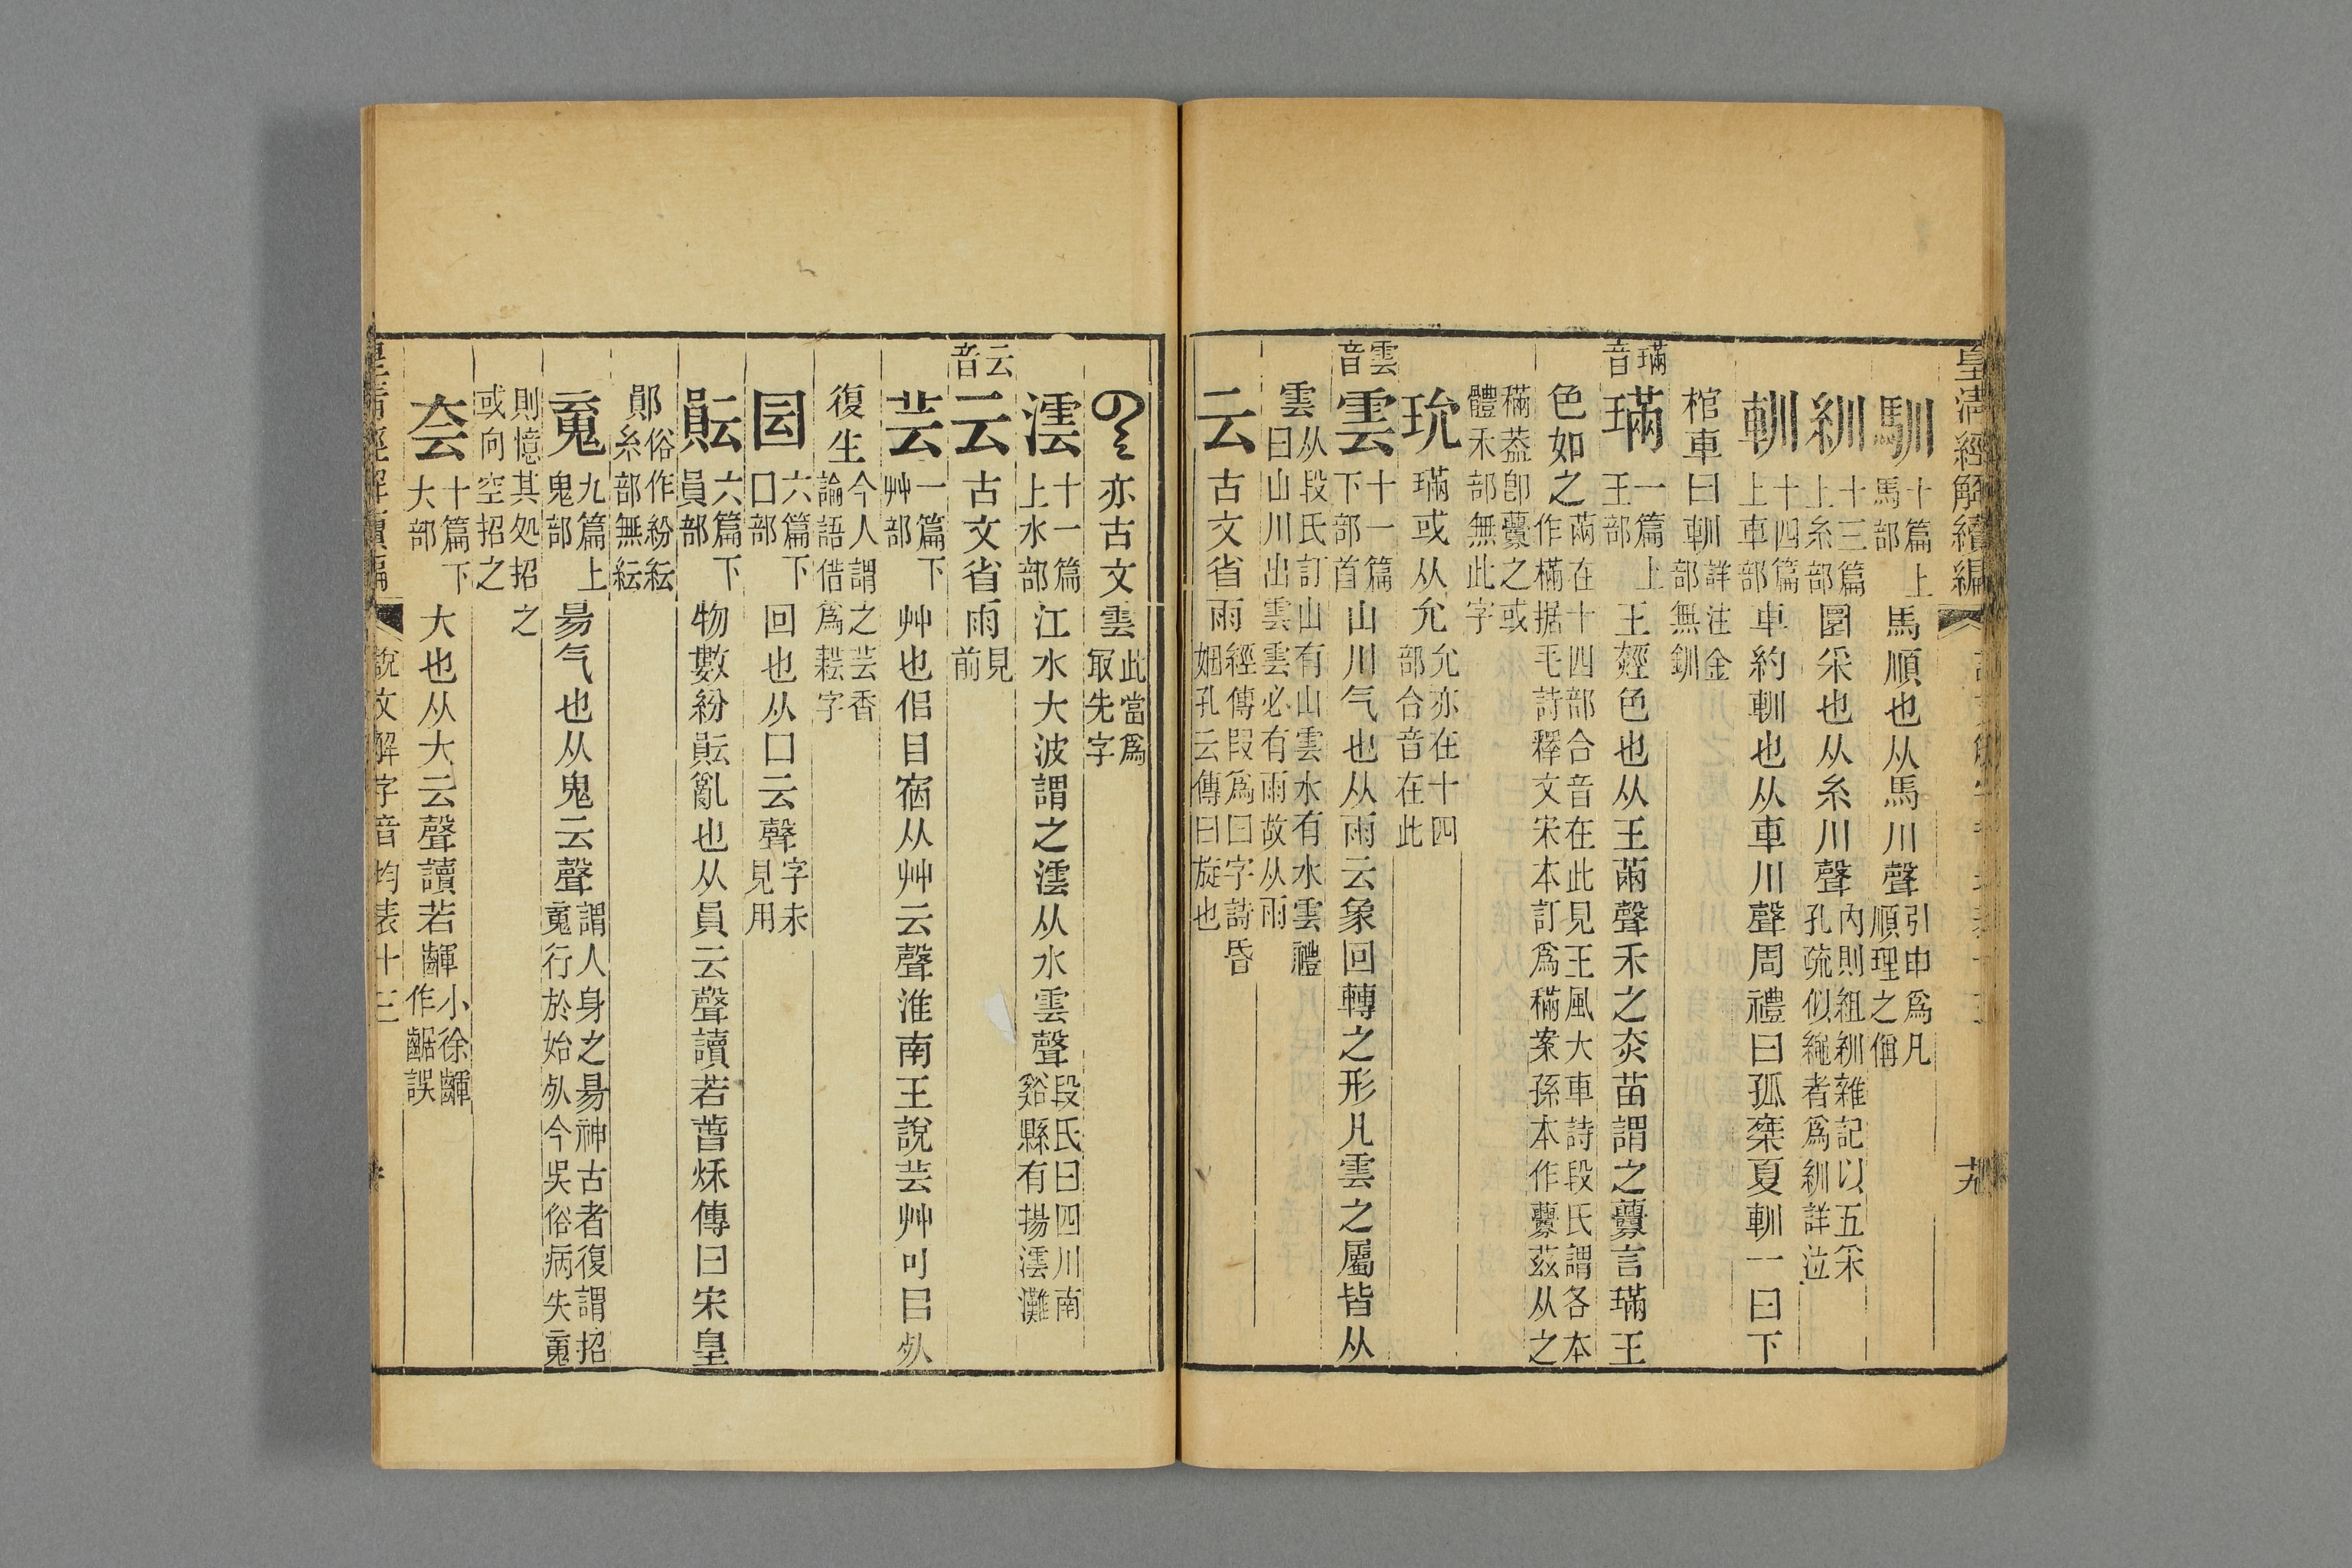 皇清經解續編
馴十篇上馬部馬順也从馬川聲引申爲凡順理之偁
紃十三篇上糸部圜采也从糸川聲內則組紃雜記以五采孔疏似繩者爲紃詳泣
軐十四篇上車部車約軐也从車川聲周禮曰孤椉夏軐一曰下
棺車曰軐詳注金部無釧
璊音
璊一篇上王部王䞓色也从王㒼聲禾之赤苗謂之虋言璊王
色如之㒼在十四部合音在此見王風大車詩段氏謂各本作樠据毛詩釋文宋本訂爲穈案孫本作虋茲从之
穈葢卽虋之或體禾部無此字
玧璊或从允允亦在十四部合音在此
雲音
雲十一篇下部首山川气也从雨云象回轉之形凡雲之屬皆从
雲从段氏訂山有山雲水有水雲禮曰山川出雲雲必有雨故从雨
云古文省雨經傳叚爲曰字詩昏姻孔云傳曰旋也
亦古文雲此當爲冣先字
澐十一篇上水部江水大波謂之澐从水雲聲段氏曰四川南谿縣有揚澐灘
云音
云古文省雨見前
芸一篇下艸部艸也佀目宿从艸云聲淮南王說芸艸可㠯𣦸
復生今人謂之芸香論語借爲耘字
囩六篇下囗部回也从囗云聲字未見用
䢵六篇下員部物數紛䢵亂也从員云聲讀若春秋傳曰宋皇
鄖俗作紛紜糸部無紜
䰟九篇上鬼部昜气也从鬼云聲謂人身之昜神古者復謂招䰟行於始𣦸今吳俗病失䰟
則憶其処招之或向空招之
夽十篇下大部大也从大云聲讀若齳小徐齳作齫誤
說文解字音均表十三